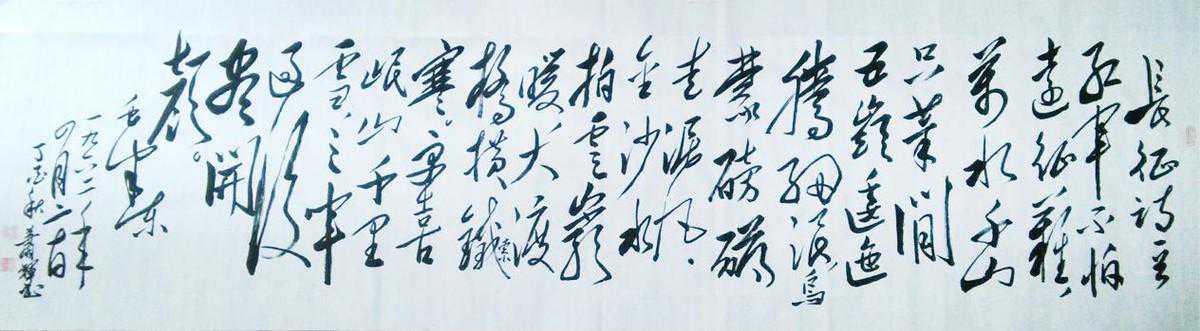 長征詩一首
紅軍不怕
遠征難,
萬水千山
只等閒
五嶺逶迤
騰細浪烏
蒙磅礴
走泥丸。
金沙水
拍雲崖
暖大渡
橋橫鐵索
寒。更喜
岷山千里
雪三軍
過後
盡開
顏。
毛澤東
一九六二年
四月二十日
丁酉秋